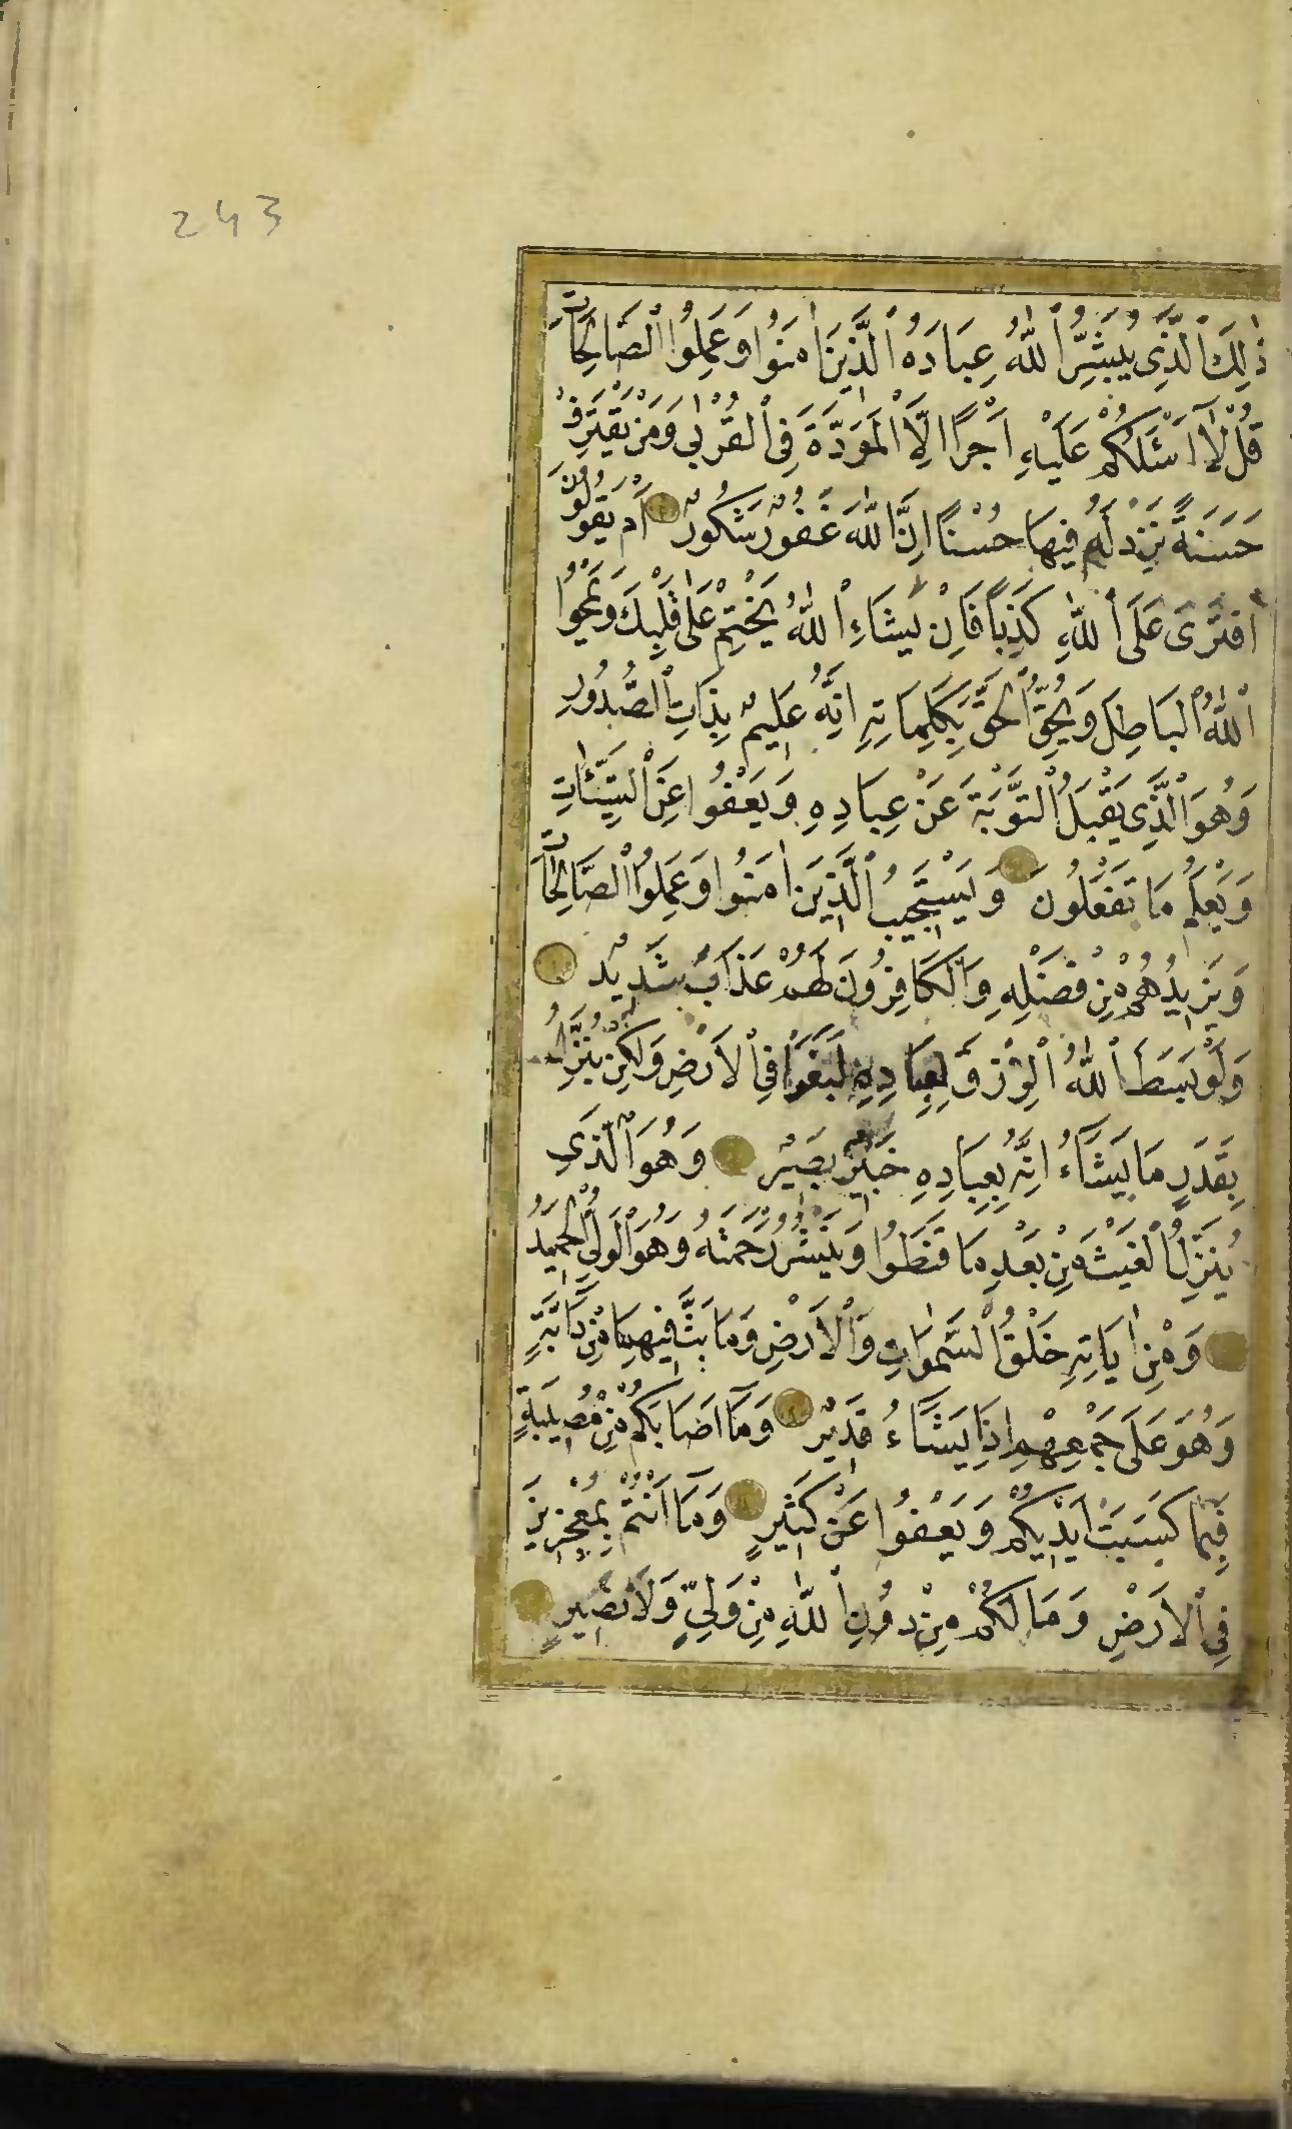 243
ذٰلِكَ ٱلَّذِي يُبَشِّرُ ٱللّٰهُ عِبَادَهُ ٱلَّذِينَ اٰمَنُوا وَعَمِلُوا ٱلصَّالِحَاتِ
قُلْ لَآ اَسْئَلُكُمْ عَلَيْهِ اَجْرًا اِلَّا ٱلْمَوَدَّةَ فِى ٱلْقُرْبٰى وَمَنْ يَقْتَرِفْ
حَسَنَةً نَزِدْ لَهُ فِيهَا حُسْنًا اِنَّ ٱللّٰهَ غَفُورٌ شَكُورٌ اَمْ يَقُولُونَ
ٱفْتَرٰى عَلَى ٱللّٰهِ كَذِبًا فَاِنْ يَشَاءِ ٱللّٰهُ يَخْتِمْ عَلٰى قَلْبِكَ وَيَمْحُوا
ٱللّٰهُ ٱلْبَاطِلَ وَيُحِقُّ ٱلْحَقَّ بِكَلِمَاتِهِ اِنَّهُ عَلِيمٌ بِذَاتِ ٱلصُّدُورِ
وَهُوَ ٱلَّذِى يَقْبَلُ ٱلتَّوْبَةَ عَنْ عِبَادِهِ وَيَعْفُوا عَنِ ٱلسَّيِّئَاتِ
وَيَعْلَمُ مَا تَفْعَلُونَ وَيَسْتَجِيبُ ٱلَّذِينَ اٰمَنُوا وَعَمِلُوا ٱلصَّالِحَاتِ
وَيَزِيدُهُمْ مِنْ فَضْلِهِ وَٱلْكَافِرُونَ لَهُمْ عَذَابٌ شَدِيدٌ
وَلَوْ بَسَطَ ٱللّٰهُ ٱلرِّزْقَ لِعِبَادِهِ لَبَغَوْا فِى ٱلْاَرْضِ وَلٰكِنْ يُنَزِّلُ
بِقَدَرٍ مَا يَشَآءُ اِنَّهُ بِعِبَادِهِ خَبِيرٌ بَصِيرٌ وَهُوَ ٱلَّذِى
يُنَزِّلُ ٱلْغَيْثَ مِنْ بَعْدِ مَا قَنَطُوا وَيَنْشُرُ رَحْمَتَهُ وَهُوَ ٱلْوَلِىُّ ٱلْحَمِيدُ
وَمِنْ اٰيَاتِهِ خَلْقُ ٱلسَّمٰوَاتِ وَٱلْاَرْضِ وَمَا بَثَّ فِيهِمَا مِنْ دَآبَّةٍ
وَهُوَ عَلَى جَمْعِهِمْ اِذَا يَشَآءُ قَدِيرٌ وَمَآ اَصَابَكُمْ مِنْ مُصِيبَةٍ
فَبِمَا كَسَبَتْ اَيْدِيكُمْ وَيَعْفُوا عَنْ كَثِيرٍ وَمَآ اَنْتُمْ بِمُعْجِزِينَ
فِى ٱلْاَرْضِ وَمَا لَكُمْ مِنْ دُونِ ٱللّٰهِ مِنْ وَلِىٍّ وَلَا نَصِيرٍ